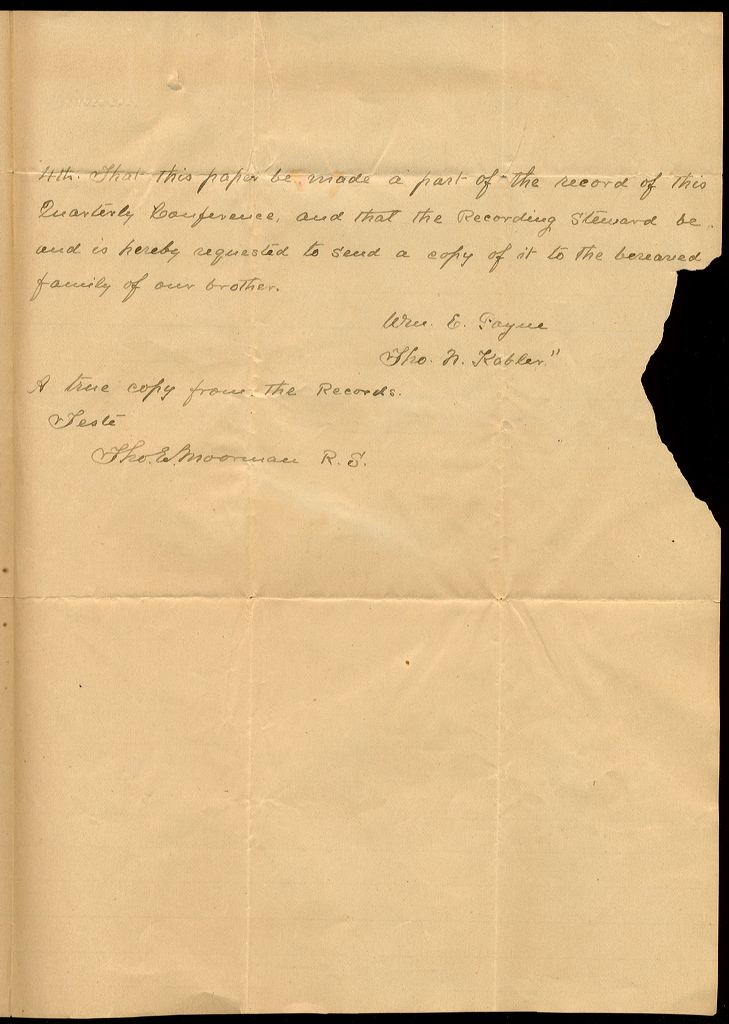 4th. That this paper be made a part of the record of this
Quarterly Conference, and that the Recording Steward be,
and is hereby requested to send a copy of it to the bereaved
family of our brother.
Wm. E. Payne
Tho. N. Kabler"
A true copy from the Records.
Teste
Tho. E. Moorman R. S.